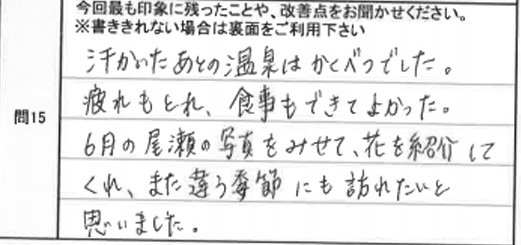 今回最も印象に残ったことや、改善点をお聞かせください。
※書ききれない場合は裏面をご利用下さい
問15
汗かいたあとの温泉はかくべつでした。
疲れもとれ、食事もできてよかった。
6月の尾瀬の写真をみせて、花を紹介して
くれ、また違う季節にも訪れたいと
思いました。